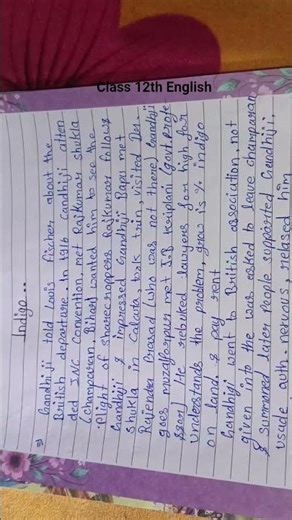 Class 12th English
Indigo..
Gandhiji told Louis Fischer about the
British departure. In 1916 Gandhiji atten
ded INC Convention, met Rajkumar Shukla
(champaran, Bihar) wanted him to see the
plight of sharecroppers Rajkumar follows
Gandhiji & impressed Gandhiji Bapu met
shukla in Calcuta took train, visited Dr.
Rajendra Prasad (who was not there) Gandhiji
goes muzaffarpur met J.B kriplani (Govt. profe
ssor) He rebuked lawyers for high for
understands the problem, grew is % indigo
on land & pay rent
Gandhiji went to British association, not
given into the was asked to leave champaran
& summoned later people supported Gandhiji.
usade auth. nervous, relased him